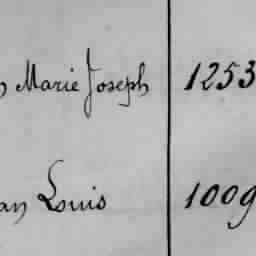 n Marie Joseph 1253
an Louis 1009